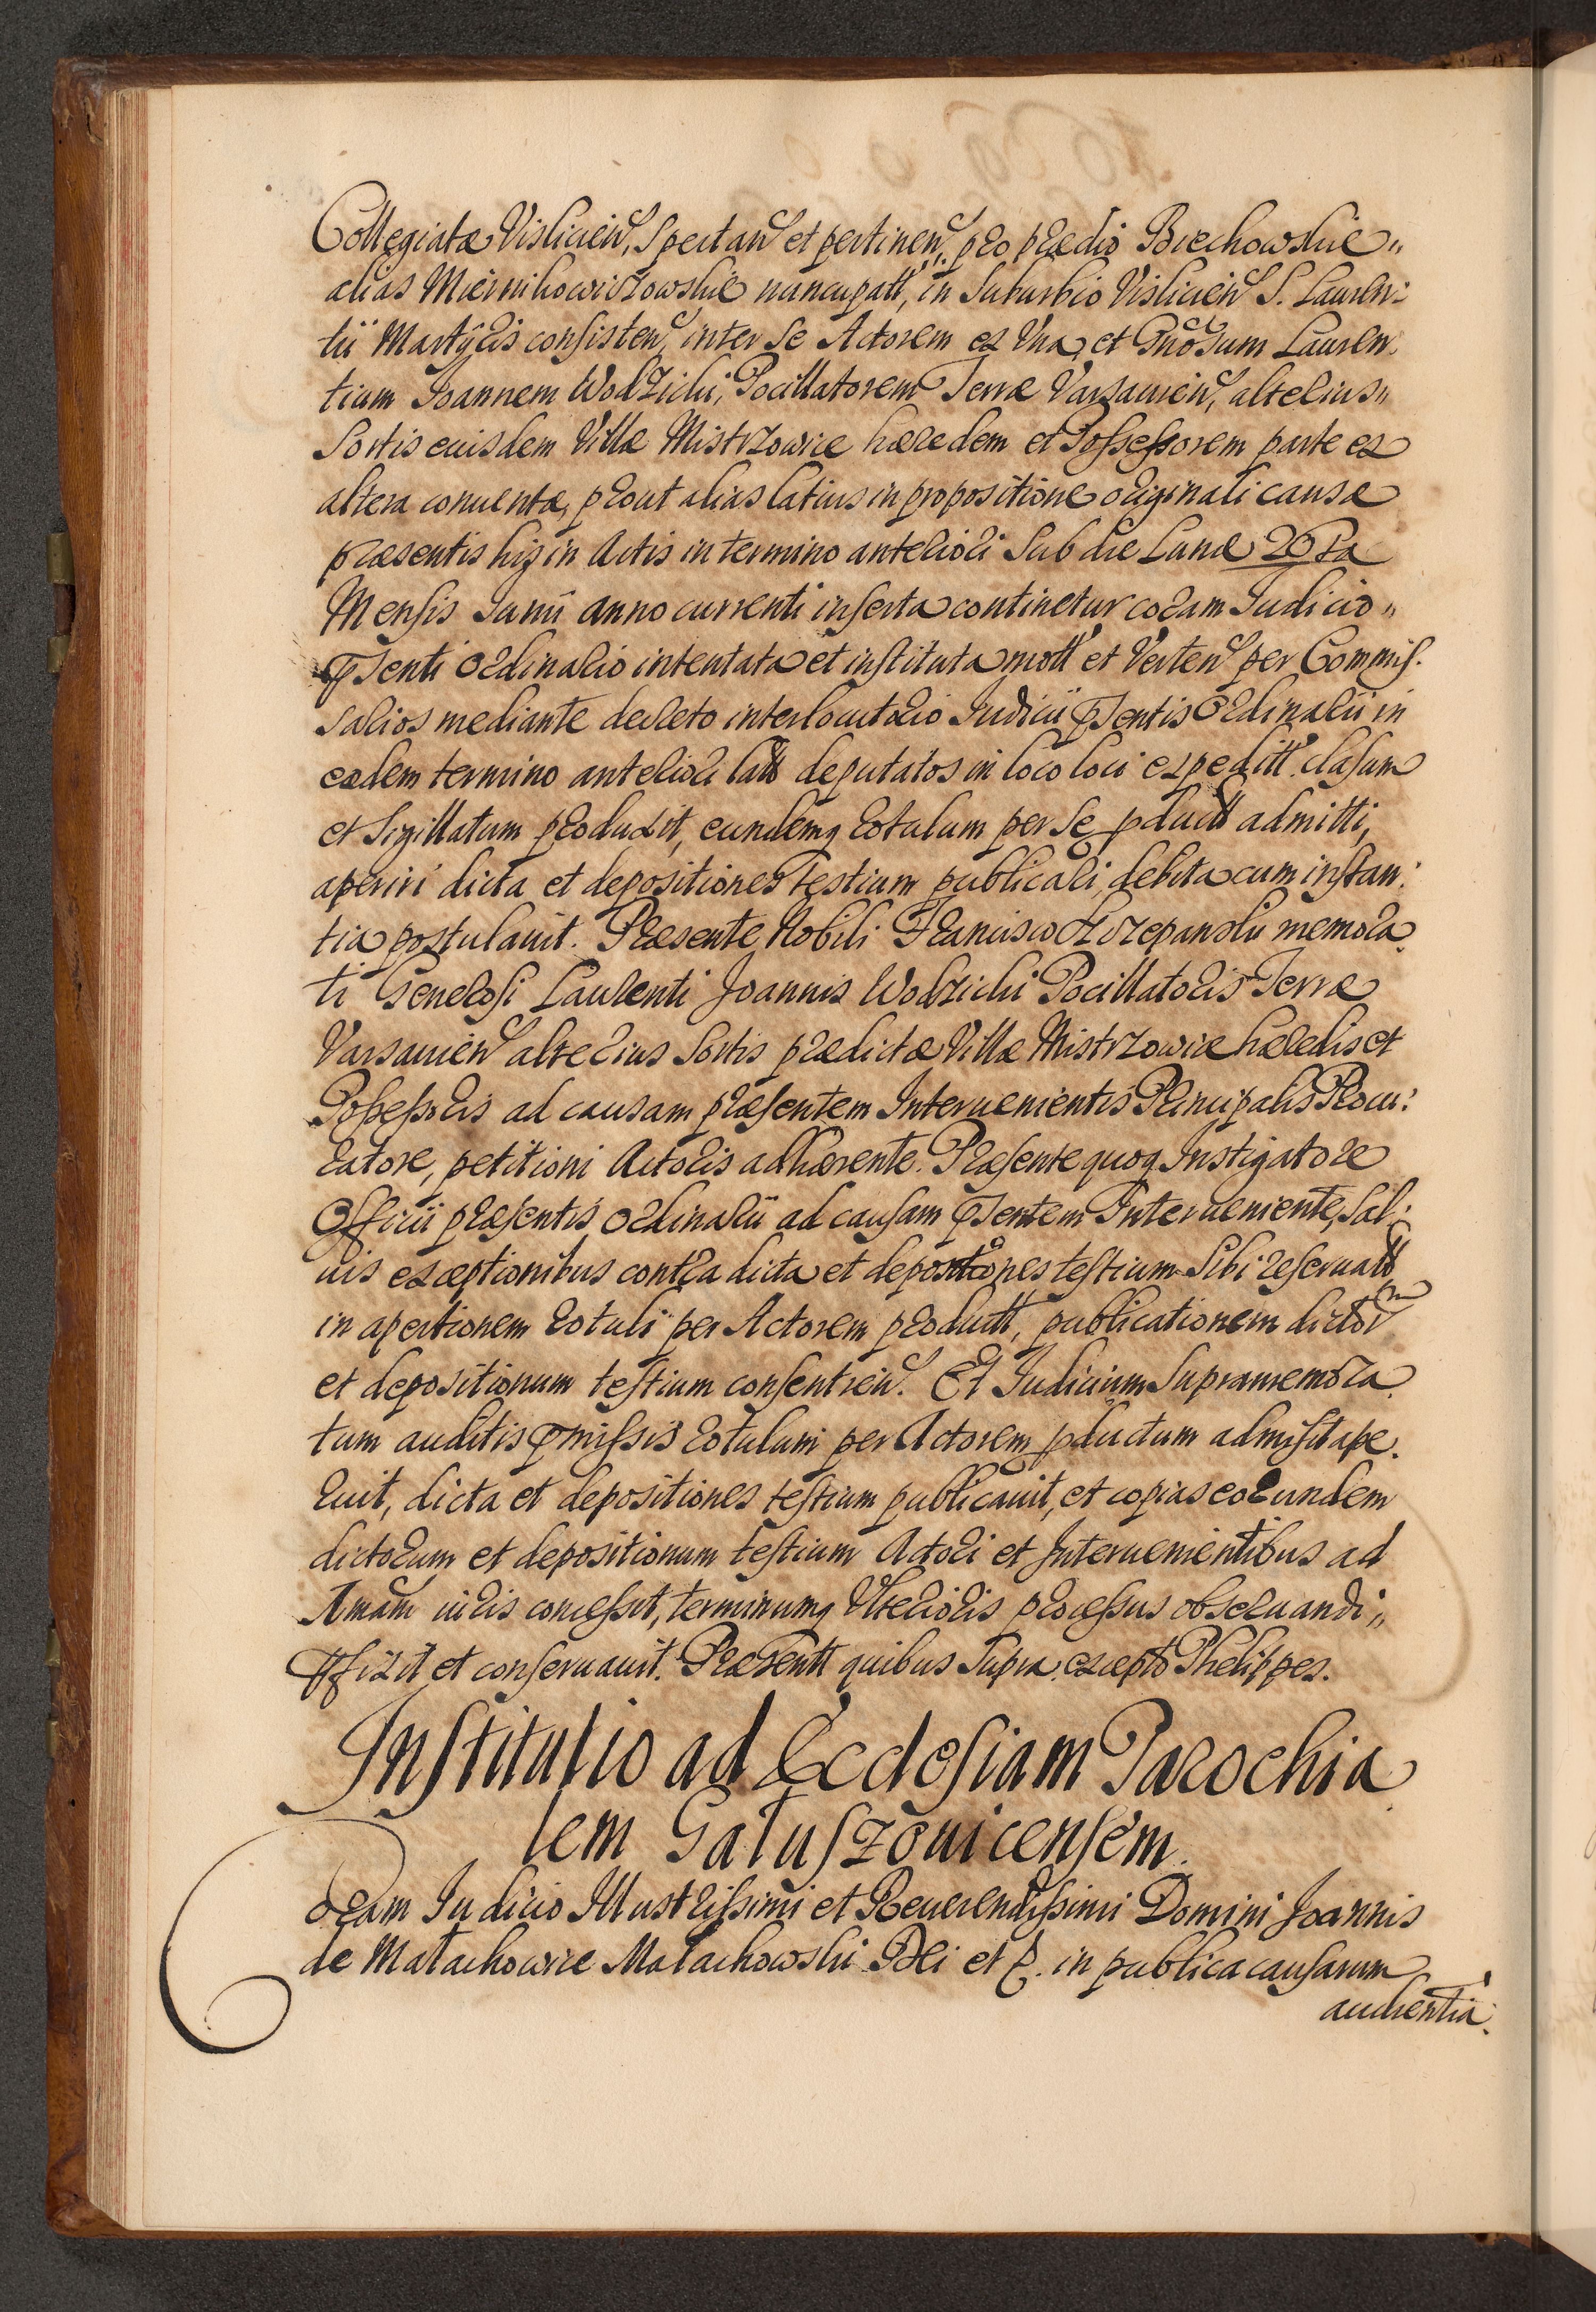 Collegiatæ Visliciens, Spectans et pertinens, pro prædio Brechowskie„
alias Miernikowiczowskie nuncupatt, in Suburbio Vislicien S. Lauren:
tii Martÿris consisten, inter Se Actorem ex Una, et Gnosum Lauren:
tium Joannem Wodzicki, Pocillatorem Terræ Varsauien, alterius„
Sortis euisdem Villæ Mistrzowice hæredem et Possessorem parte ex
altera conuentæ, prout alias latius in propositione originali causæ
præsentis hiz in Actis in termino anteriori Sub die Lunæ 20
Mensis Junii anno currenti inserta continetur coram Judicio„
pSenti Ordinario intentata et instituta mott et Verten per Commis.
sarios mediante decreto interlocutorio Judicii pSentis Ordinarii in
eodem termino anteriori latt deputatos in loco loci expeditt. clasum
et Sigillatum produxit, eundemq rotulum per Se pductt admitti,
aperiri dicta et depositiones Testium publicari, debita cum instan:
tia postulauit. Præsente Nobili Francisco Szczepanski memora
ti Generosi Laurenti Joannis Wodzicki Pocillatoris Terræ
Varsauien alterius Sortis prædictæ Villæ Mistrzowice hæredis et
Possessoris ad causam præsentem Interuenientis Principalis Procu:
ratore, petitioni Actoris adhærente. Præsente quoq Instigatore
Officii præsentis Ordinarii ad causam pSentem Interueniente, Sal:
uis exceptionibus contra dicta et depositiones testium Sibi reseruatt
in apertionem rotuli per Actorem productt, publicationem dictor
et depositionum testium consentien. Et Judicium Supramemora
tum auditis pmissis rotulum per Actorem pductum admisit ape.
ruit, dicta et depositiones testium publicauit, et copias eorundem
dictorum et depositionum testium Actori et Interuenientibus ad
Amam iuris concessit, terminumq Ulterioris processus obseruandi„
pfixit et conseruauit. Præsentt quibus Supra, excepto Phelippes.
Institutio ad Ecclesiam Parochia
lem Gałuszouicensem.
Coram Judicio Illustrissimi et Reuerendissimi Domini Joannis
de Małachowice Małachowski Dei et C. in publica causarum
audientia.